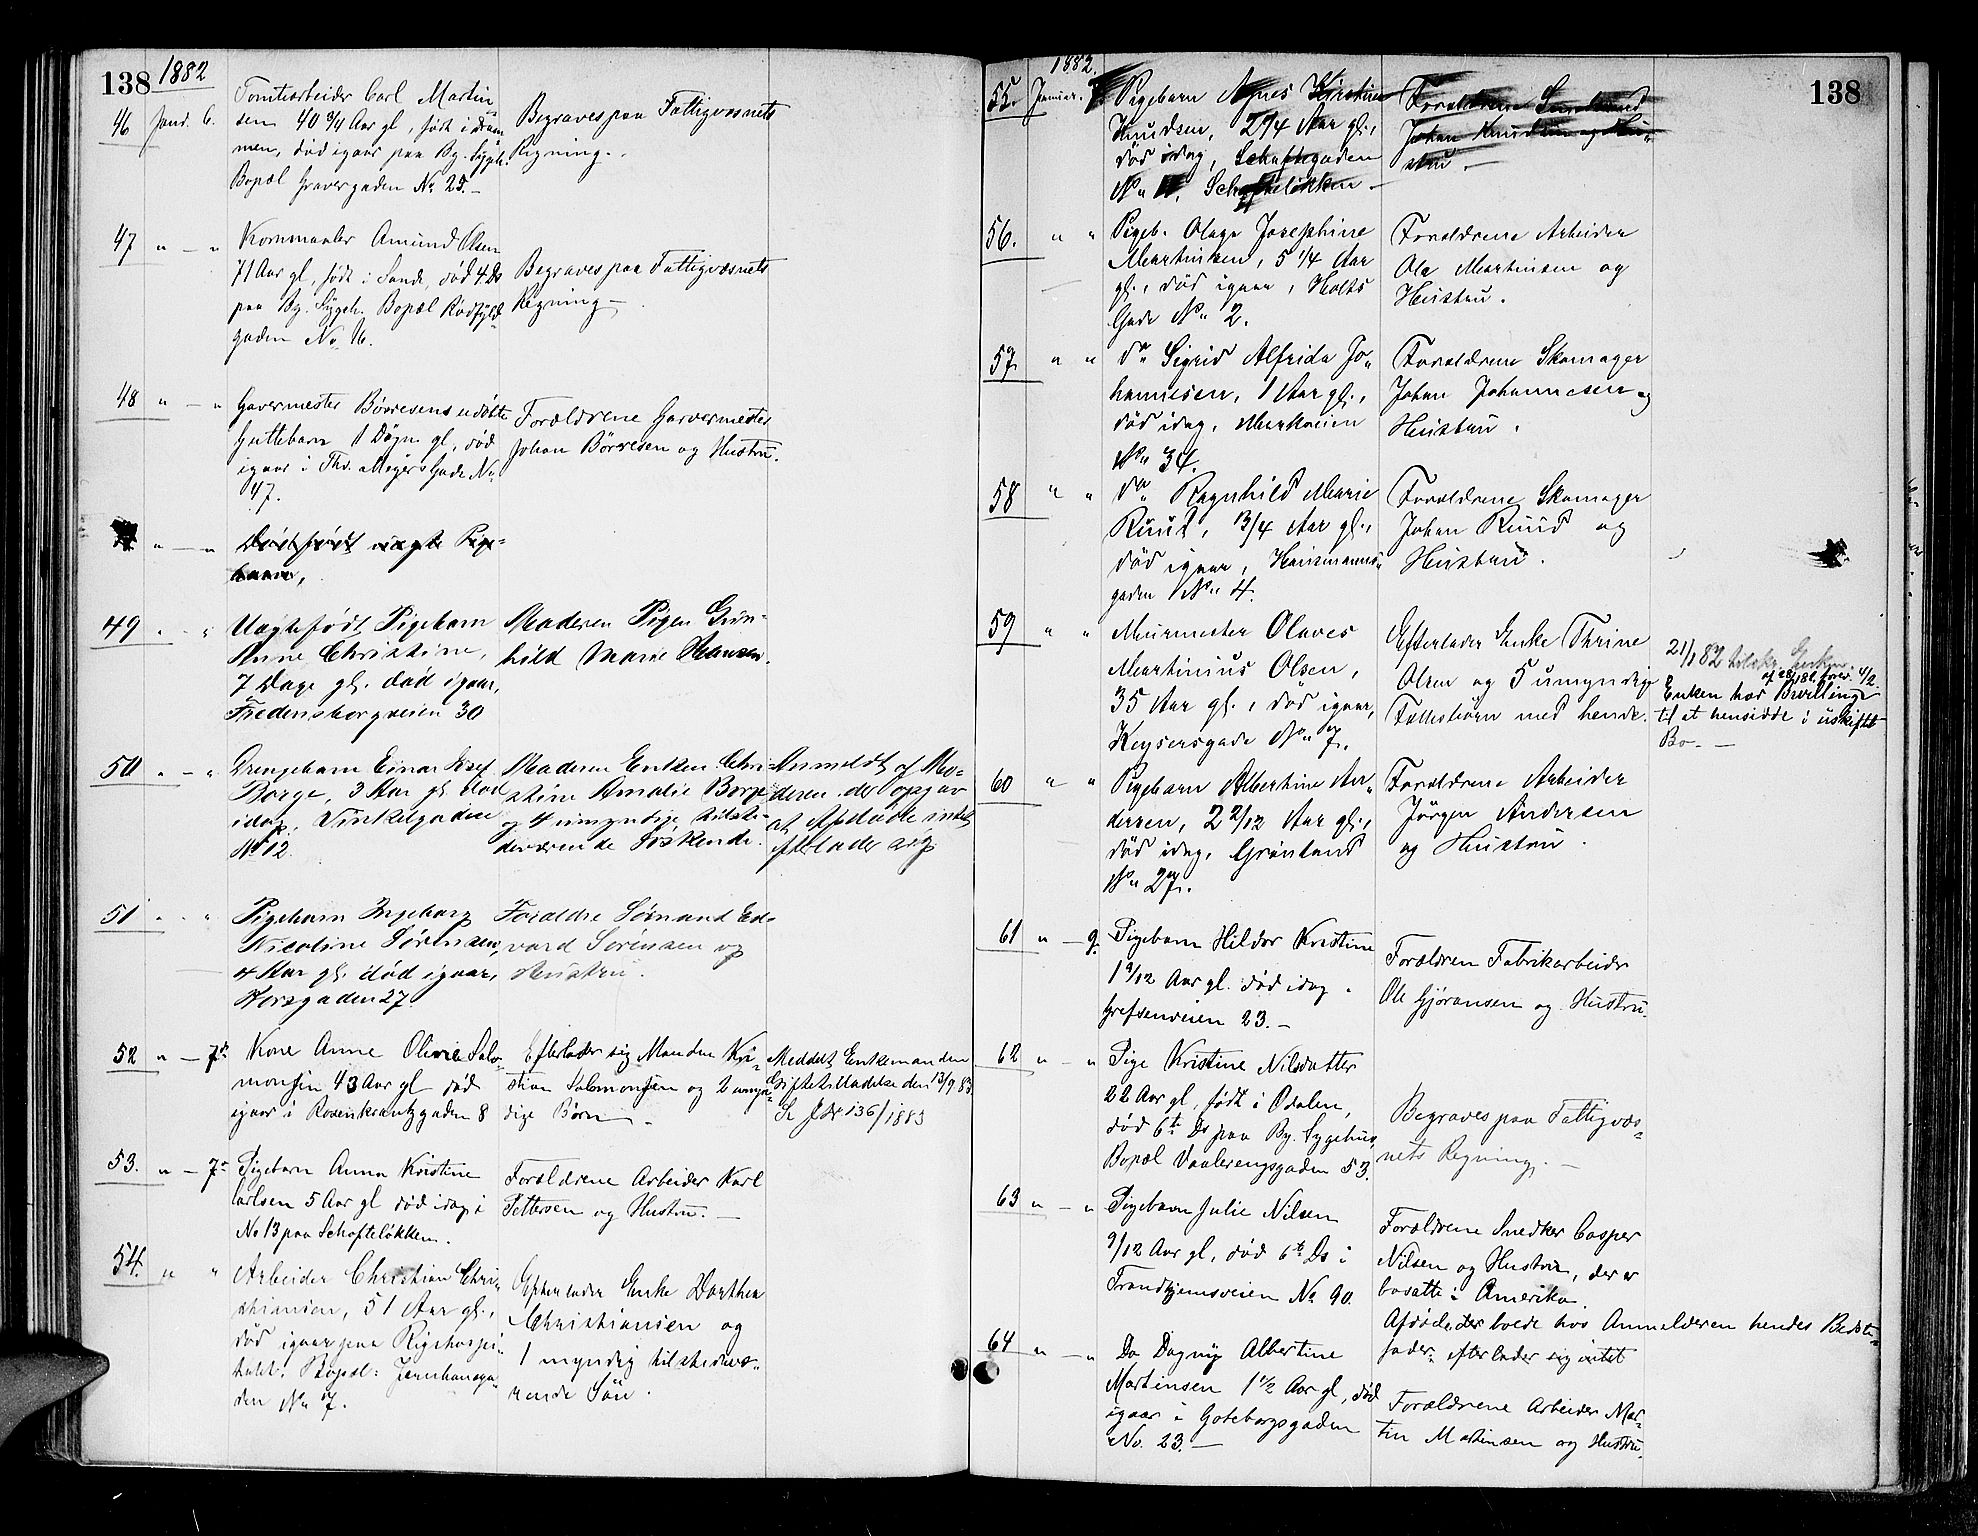 138 1882
46 Janu. 6. Tomtearbeider Carl Martin-
sen 40 3/4 Aar gl, født i Dram
men, død igaar paa By. Sygeh.
Bopæl Gravergaden No 25.-
Begraves paa Fattigvæsnets
Regning.
47 " - " Kornmaaler Amund Olsen
71 Aar gl, født i Sande, død 4 Ds
paa By. Sygeh. Bopæl Rødfyld-
gaden No 16.
Begraves paa Fattigvæsnets
Regning -
48 " - " Garvermester Børresens udøbte
Guttebarn 1 Døgn gl, død
igaar i Thv. Meyers Gade No
47.
Forældrene Garvermester
Johan Börresen og Hustru.
" - " Dødfødt uægte Pige-
barn,
49 " - " Uægtefødt Pigebarn
Anne Christine,
7 Dage gl. død igaar,
Fredensborgveien 30
Moderen Pigen Gun-
hild Marie Hansen.
50 " - " Drengebarn Einar Josef
Borge, 3 Aar gl. død
idag, Vinkelgaden
No 12.
Moderen Enken Chri-
stine Amalie Borge
og 4 umyndige tilste-
deværende Söskende.
Anmeldt af Mo-
deren der opgav
at Afdøde intet
efterlader sig.
51 " - " Pigebarn Ingeborg
Nicoline Sørensen,
4 Aar gl. død igaar,
Torsgaden 27
Forældre Sømand Ed-
vard Sörensen og
Hustru.
52 " - 7de Kone Anne Olivie Salo-
monsen 43 Aar gl død
igaar i Rosenkrantzgaden 8
Efterlader sig Manden Kri-
stian Salomonsen og 2 umyn-
dige Börn -
Meddelt Enkemanden
Giftetilladelse den 13/9 83.
Se J No 136/1883
53. " - 7de Pigebarn Anna Kristine
Carlsen 5 Aar gl død idag i
No 13 paa Schafteløkken.
Forældrene Arbeider Karl
Pettersen og Hustru. -
54. " " Arbeider Christian Chri-
stiansen, 51 Aar gl.,
død igaar paa Rigshospi-
talet. Bopæl: Jernbanega-
den No 7.
Efterlader Enke Dorthea
Christiansen og
1 myndig tilstedevæ-
rende Sön.
1882. 138
55. Januar. 7. Pigebarn Agnes Kirstine
Knudsen, 2 3/4 Aar gl.,
død idag, Schaftegaden
No 11, Schafteløkken -
Forældrene
Johan Knudsen og Hu-
stru. -
56. " " Pigeb. Olaga Josephine
Martinsen, 5 1/4 Aar
gl., død igaar, Holts
Gade No 2.
Forældrene Arbeider
Ole Martinsen og
Hustru.
57. " " do Sigrid Alfrida Jo-
hannesen, 1 Aar gl.,
død idag, Markveien
No 34.
Forældrene Skomager
Johan Johannesen og
Hustru.
58 " " do Ragnhild Marie
Ruud, 1 3/4 Aar gl.,
død igaar, Hausmanns-
gaden No 4.
Forældrene Skomager
Johan Ruud og
Hustru.
59 " " Murmester Olaves
Martinius Olsen,
35 Aar gl., død igaar,
Keysersgade No 7.
Efterlader Enke Thrine
Olsen og 5 umyndige
Fællesbørn med hende.
21/1 82 tilskr. Enken.
Enken har Bevilling
til at hensidde i uskiftet
Bo. -
60 " " Pigebarn Albertine An-
dersen, 2 2/12 Aar gl.,
død idag, Grönland
No 27.
Forældrene Arbeider
Jörgen Andersen
og Hustru.
61 " - 9. Pigebarn Hildur Kristine
1 9/12 Aar gl. død idag.
Grefsenveien 23. -
Forældren Fabrikarbeider
Ole Gjöransen og Hustru.
62 " - " Pige Kristine Nilsdatter
22 Aar gl, født i Odalen,
død 6te Ds paa By. Sygehus,
Bopæl Vaalerengsgaden 53.
Begraves paa Fattigvæs-
nets Regning. -
63 " - " Pigebarn Julie Nilsen
9/12 Aar gl, død 6te Ds i
Trondhjemsveien No 90.
Forældrene Snedker Casper
Nilsen og Hustru, der er
bosatte i Amerika.
Afdøde der boede hos Anmelderen hendes Bedste-
fader, efterlader sig intet
64 " - " Do Dagny Albertine
Martinsen 1 1/2 Aar gl, død
igaar i Goteborgsgaden
No. 23. -
Forældrene Arbeider Mar-
tin Martinsen og Hustru.